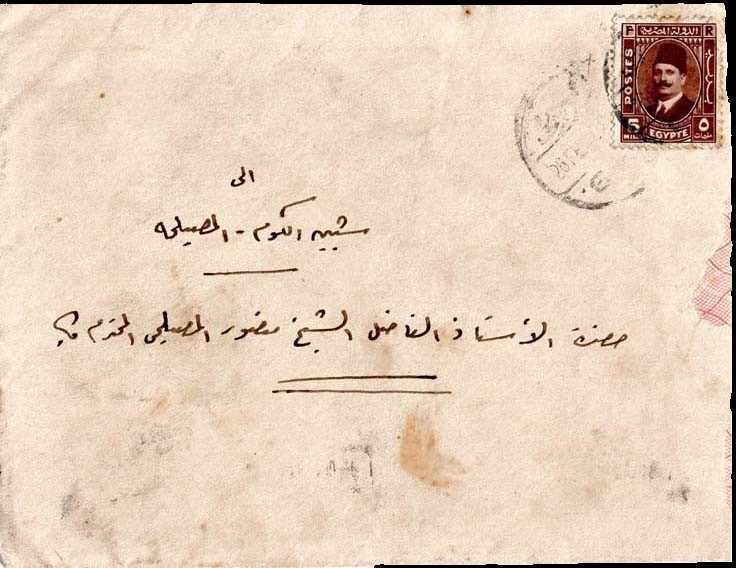 الدولة المصرية
F R
POSTES
5 MILL.
EGYPTE
٥ مليمات
الى
شبين الكوم - المصيلحه
حضرة الأستاذ الفاضل الشيخ منصور المصيلحى المحترم